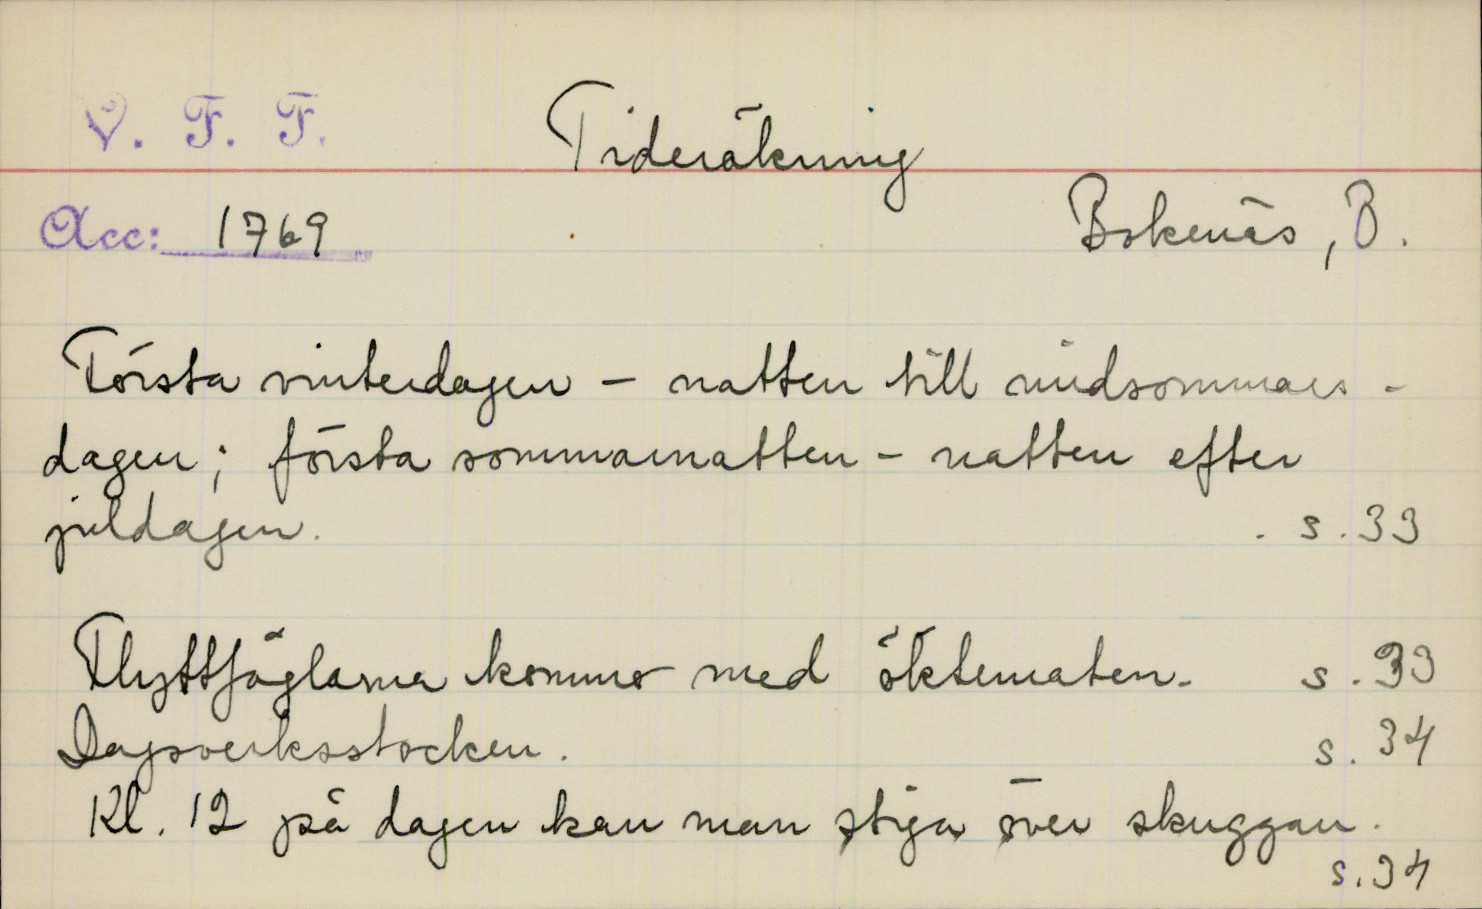 V. F. F.
Tideräkning
Acc: 1769
Bokenäs, B.
Första vinterdagen – natten till midsommars-
dagen; första sommarnatten – natten efter
juldagen. s. 33
Flyttfåglarna kommo med öktematen. s. 33
Dagsverksstocken. s. 34
Kl. 12 på dagen kan man stiga över skuggan.
s. 34